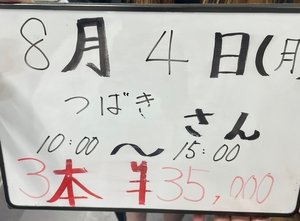 8月4日(月
つばき さん
10:00 〜 15:00
3本 ¥35,000